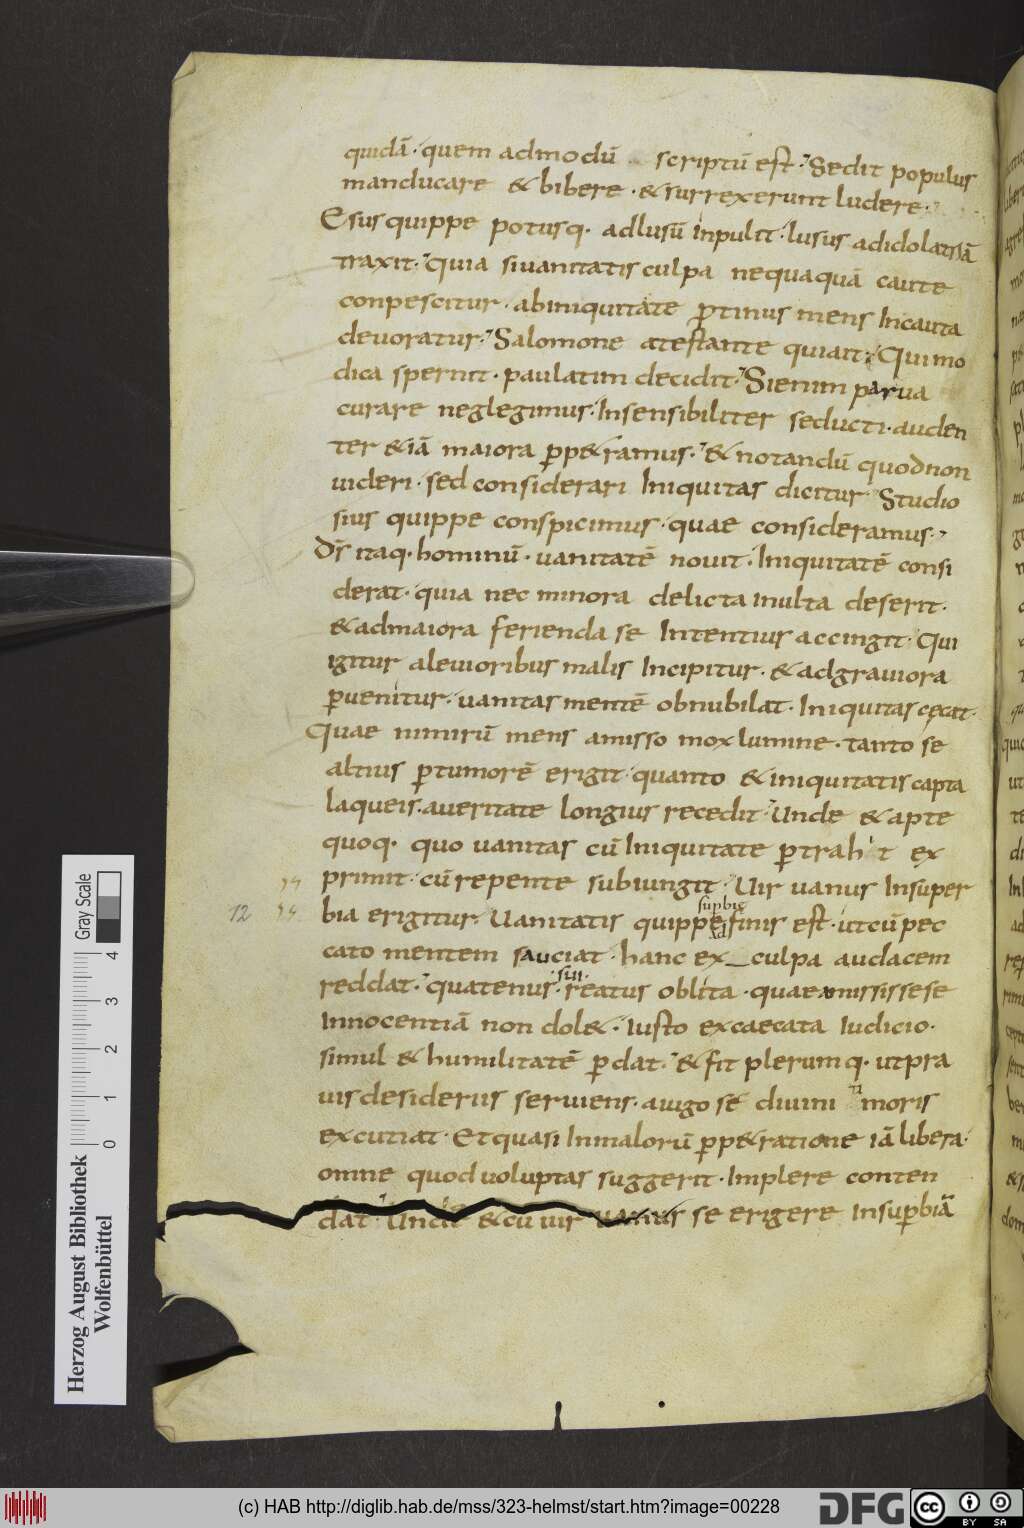 quidā· quem admodū scriptū est· Sedit populus
manducare & bibere· & surrexerunt ludere·
Esus quippe potusq· adlusū inpulit· lusus adidolatriā
traxit· Quia si uanitatis culpa nequaquā caute
conpescitur· ab iniquitate ꝓtinus mens Incauta
deuoratur· Salomone atestante qui ait· Qui mo
dica spernit· paulatim decidit· Si enim parua
curare neglegimus· Insensibiliter seducti· auden
ter & iā maiora ꝑp&ramus· & notandū quod non
uideri· sed considerari Iniquitas dicitur· Studio
sius quippe conspicimus· quae consideramus·
D̄s itaq· hominū· uanitatē nouit· Iniquitatē consi
derat· quia nec minora delicta inulta deserit·
& ad maiora ferienda se Intentius accingit· Qui
igitur a leuioribus malis Incipitur· & adgrauiora
ꝑuenitur· uanitas mentē obnubilat· Iniquitas cęcat·
Quae nimirū mens amisso mox lumine· tanto se
altius ꝑ tumorē erigit· quanto & iniquitatis capta
laqueis· a ueritate longius recedit· Unde & apte
quoq· quo uanitas cū Iniquitate ꝑtrahit ex
primit· cū repente subiungit· Uir uanus Insuper
12 bia erigitur· Uanitatis quippe finis est· ut cū pec
cato mentem sauciat· hanc ex culpa audacem
reddat· quatenus· sui· reatus oblita· quae amisisse se
Innocentiā non dol&· Iusto excaecata Iudicio·
simul & humilitatē ꝑdat· & fit plerumq· ut pra
uis desideriis seruiens· a iugo se diuini timoris
excutiat· Et quasi In malorū ꝑp&ratione iā libera·
omne quod uoluptas suggerit· Implere conten
dat· Unde & cū uir uanus se erigere Insuꝑbiā
Herzog August Bibliothek
Wolfenbüttel
Gray Scale
0 1 2 3 4
(c) HAB http://diglib.hab.de/mss/323-helmst/start.htm?image=00228
DFG
cc BY SA